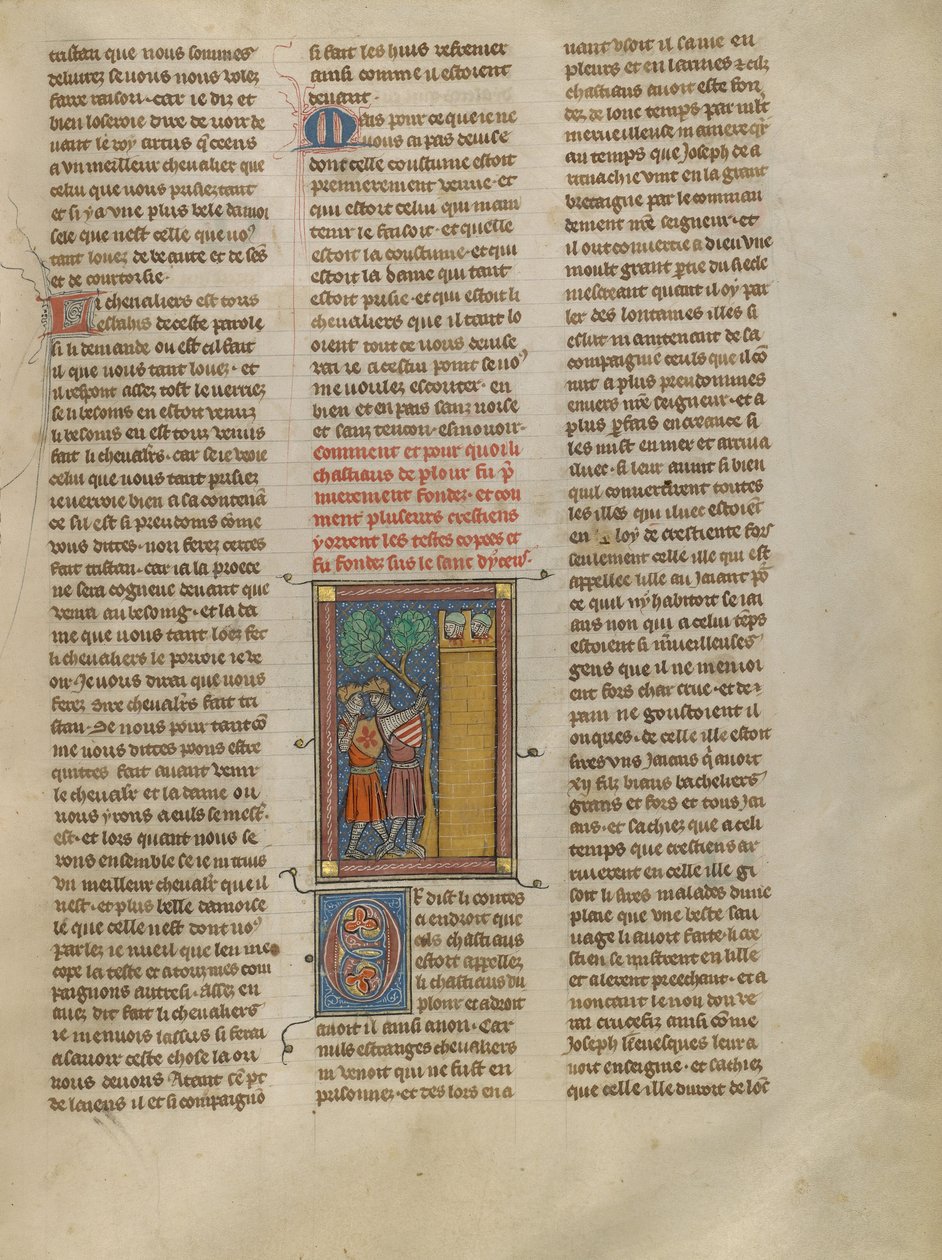 tristan que nous sommes
deliurez se uous nous uolez
faire raison. car ie di et
bien loseroie dire de uoir de
uant le roy artus q̃ ceens
a vn meilleur cheualier que
celui que uous prisiez tant
et si y a vne plus bele damoi
sele que nest celle que uo9
tant louez de beaute et de sens
et de courtoisie.
Li cheualiers est touz
esbahis de ceste parole
si li demande ou est cil fait
il que uous tant louez. et
il respont assez tost le uerriez
se li besoins en estoit uenuz
li besoins en est touz uenus
fait li cheualr̃s. car se ie uoie
celui que uous tant prisiez
ie uerroie bien a sa contenã
ce sil est si preudoms cõme
uous dittes. non ferez certes
fait tristan. car ia la proece
ne sera cogneue deuant que
uenra au besoing. et la da
me que uous tant loez fet
li cheualiers le porroie ie ve
oir. Je uous dirai que uous
ferez dire cheualr̃s fait tri
stan. De nous pour tant cõ
me uous dittes poons estre
quittes fait auant uenir
le cheualr̃ et la dame ou
nous yrons a euls se mest.
est. et lors quant nous se
rons ensemble se ie ni truis
vn meilleur cheualr̃ que il
nest. et plus belle damoise
le que celle nest dont uo9
parlez ie uueil que len me
cope la teste et a touz mes com
paignons autresi. Assez en
auez dit fait li cheualiers
ie men uois lassus si ferai
a sauoir ceste chose la ou
nous deuons. Atant sẽ pt
de laiens il et si compaignõ
si fait les huis refremer
ainsi comme il estoient
deuant.
Mais pour ce que ie ne
uous ai pas deuise
dont celle coustume estoit
premierement uenue. et
qui estoit celui qui main
tenir le faisoit. et quelle
estoit la coustume. et qui
estoit la dame qui tant
estoit prisie. et qui estoit li
cheualiers que il tant lo
oient tout ce uous deuise
rai ie a cestui point se uo9
me uoulez escouter. en
bien et en pais sanz noise
et sanz tencon. esmouuoir.
Comment et pour quoi li
chastiaus de plour fu p̃
mierement fondez. et cou
ment pluseurs crestiens
y orrent les testes copees et
fu fondez sus le sanc dyceus.
Or dist li contes
ci endroit que
cils chastiaus
estoit appellez
li chastiaus du
plour et a droit
auoit il ainsi a non. Car
nuls estranges cheualiers
ni uenoit qui ne fust en
prisonnez. et des lors en a
uant vsoit il sa uie en
pleurs et en larmes et cilz
chastiaus auoit este fon
dez de lonc temps par mlt
merueilleuse maniere. q̃r
au temps que Joseph de a
rimachie vint en la grant
bretaigne par le comman
dement nr̃e seigneur. et
il out conuertie a dieu vne
moult grant p̃tie du siecle
mescreant quant il oy par
ler des lontaines illes si
eslut maintenant de sa
compaignie ceuls que il cõ
nut a plus preudommes
enuers nr̃e seigneur. et a
plus p̃fais en creance si
les mist en mer et arriua
iluec. si leur auint si bien
quil conuertirent toutes
les illes qui iluec estoiẽt
en loy de crestiente fors
seulement celle ille qui est
appellee lille au Jaiant põ
ce quil ny habitoit se iai
ans non qui a celui tẽps
estoient si m̃ueilleuses
gens que il ne menioi
ent fors char crue. et de
pain ne goustoient il
onques. de celle ille estoit
sires vns Jaians q̃ auoit
xij filz biaus bacheliers
grans et fors et tous Jai
ans. et sachiez que a celi
temps que crestiens ar
riuerent en celle ille gi
soit li sires malades dune
plaie que vne beste sau
uage li auoit faite. li cre
stien se mistrent en lille
et alerent preechant. et a
noncant le non dou ve
rai crucefiz ainsi cõme
Joseph leuesques leur a
uoit enseigne. et sachiez
que celle ille duroit de lõc